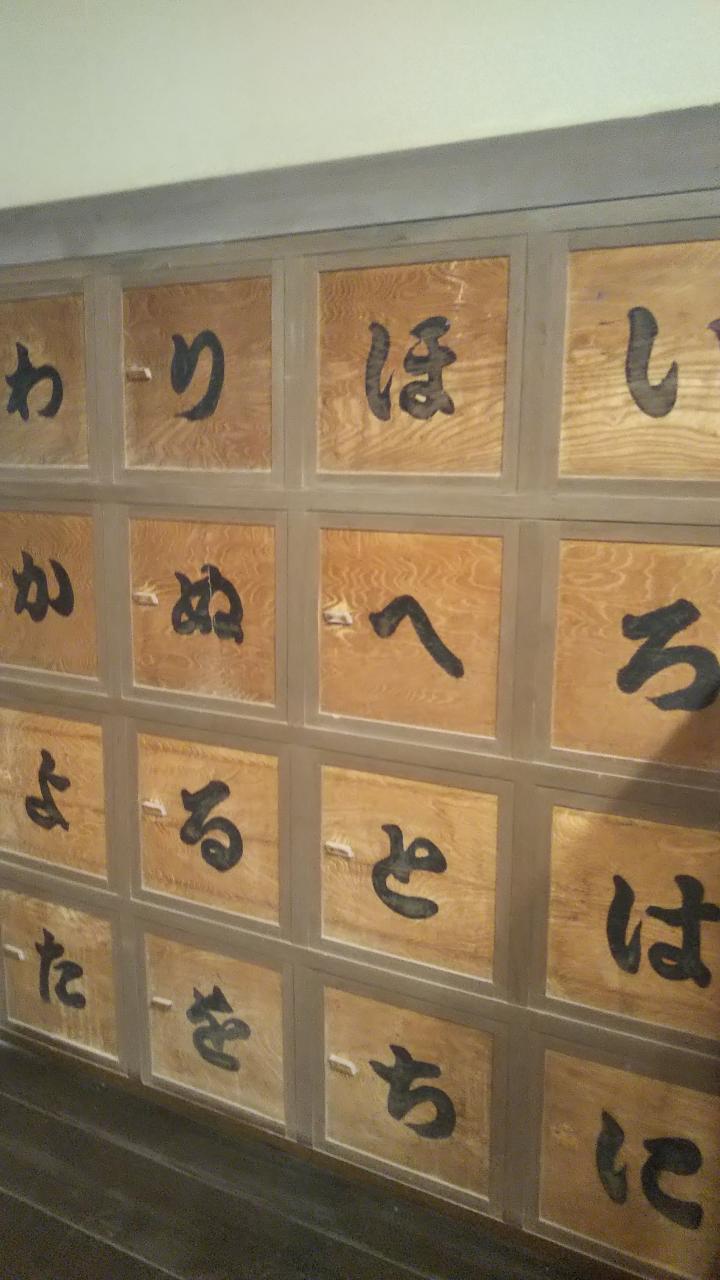 い
ろ
は
に
ほ
へ
と
ち
り
ぬ
る
を
わ
か
よ
た